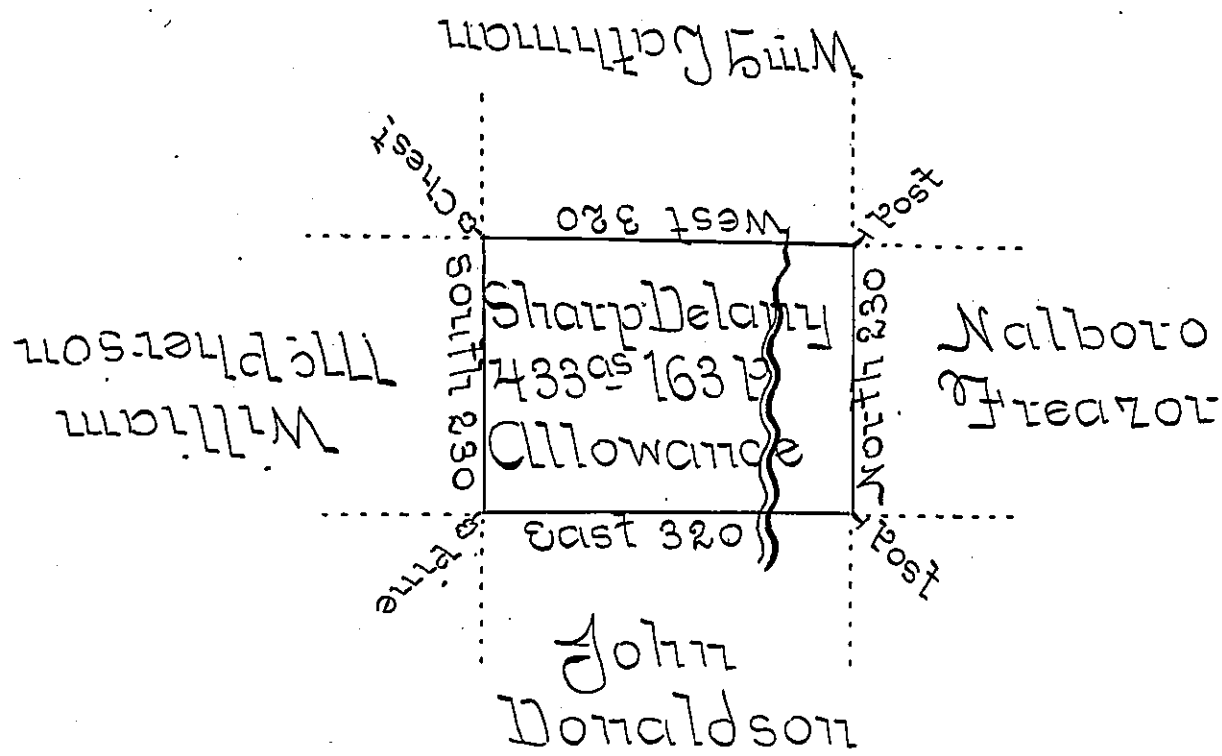 Wm Lathman
Chest.
West 320
Post
South 230
Sharp Delany
433as 163 p
Allowance
North 230
Nalboro
Freazor
William
McPherson
Pine
East 320
Post
John
Donaldson